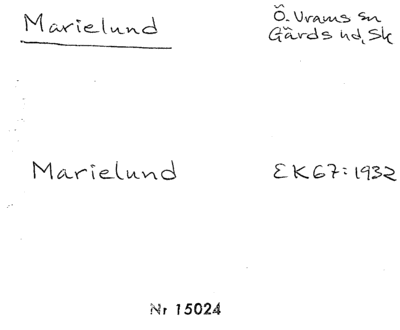 Marielund
Ö. Vrams sn
Gärds hd, Sk
Marielund
EK67:1932
Nr 15024